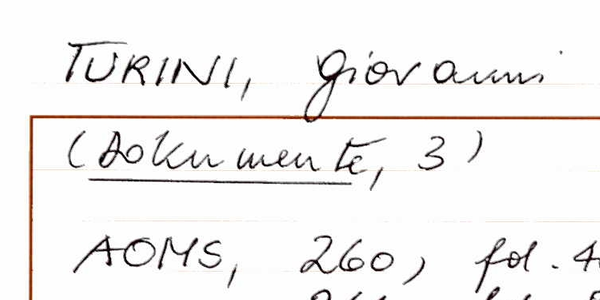 TURINI, Giovanni
(Dokumente, 3)
AOMS, 260, fol. 4